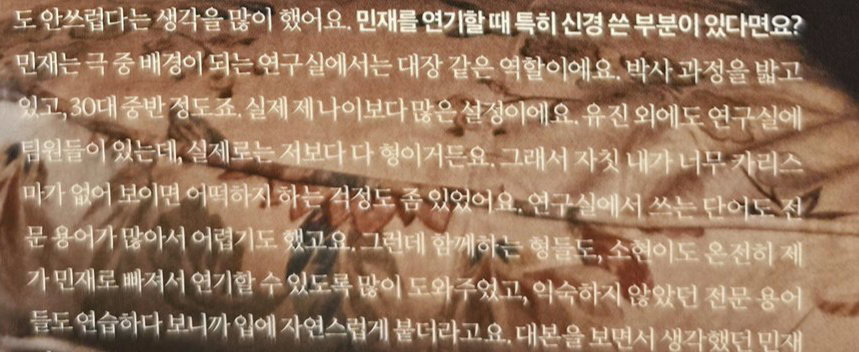 도 안쓰럽다는 생각을 많이 했어요. 민재를 연기할 때 특히 신경 쓴 부분이 있다면요?
민재는 극 중 배경이 되는 연구실에서는 대장 같은 역할이에요. 박사 과정을 밟고
있고, 30대 중반 정도죠. 실제 제 나이보다 많은 설정이에요. 유진 외에도 연구실에
팀원들이 있는데, 실제로는 저보다 다 형이거든요. 그래서 자칫 내가 너무 카리스
마가 없어 보이면 어떡하지 하는 걱정도 좀 있었어요. 연구실에서 쓰는 단어도 전
문 용어가 많아서 어렵기도 했고요. 그런데 함께하는 형들도, 소현이도 온전히 제
가 민재로 빠져서 연기할 수 있도록 많이 도와주었고, 익숙하지 않았던 전문 용어
들도 연습하다 보니까 입에 자연스럽게 붙더라고요. 대본을 보면서 생각했던 민재